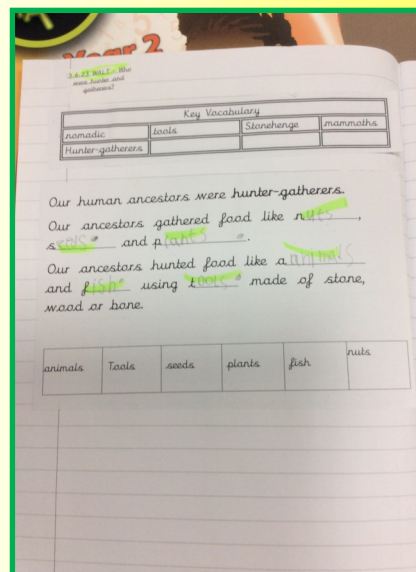 Year 2
2.6.23 WALT - Who
were hunter and
gatherers?
Key Vocabulary
nomadic tools Stonehenge mammoths
Hunter-gatherers
Our human ancestors were hunter-gatherers.
Our ancestors gathered food like nuts,
and plants.
Our ancestors hunted food like animals
and fish using tools made of stone,
wood or bone.
animals Tools seeds plants fish nuts